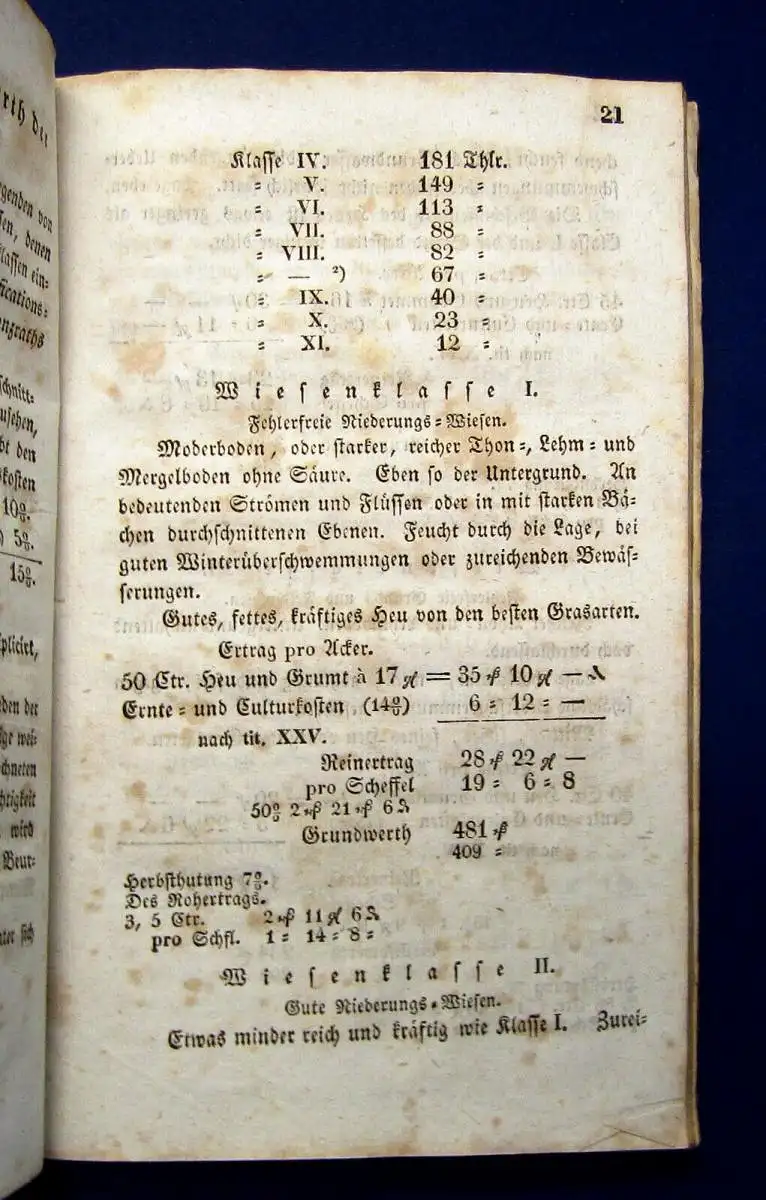 rth die
genden von
ssen, denen
lassen ein=
fications=
nzraths
schnitt=
zusehen,
bt den
kosten
10%.
) 5%.
15%.
plicirt,
den der
ge wei=
chneten
htigkeit
wird
Beur=
ter sich
21
Klasse IV. 181 Thlr.
= V. 149 =
= VI. 113 =
= VII. 88 =
= VIII. 82 =
= — ²) 67 =
= IX. 40 =
= X. 23 =
= XI. 12 =
Wiesenklasse I.
Fehlerfreie Niederungs=Wiesen.
Moderboden, oder starker, reicher Thon=, Lehm= und
Mergelboden ohne Säure. Eben so der Untergrund. An
bedeutenden Strömen und Flüssen oder in mit starken Bä=
chen durchschnittenen Ebenen. Feucht durch die Lage, bei
guten Winterüberschwemmungen oder zureichenden Bewäs=
serungen.
Gutes, fettes, kräftiges Heu von den besten Grasarten.
Ertrag pro Acker.
50 Ctr. Heu und Grumt à 17 gl = 35 rβ 10 gl — ₰
Ernte= und Culturkosten (14%) 6 = 12 = —
nach tit. XXV.
Reinertrag 28 rβ 22 gl —
pro Scheffel 19 = 6 = 8
50% 2 rβ 21 rβ 6 ₰
Grundwerth 481 rβ
409 =
Herbsthutung 7%.
Des Rohertrags.
3, 5 Ctr. 2 rβ 11 gl 6 ₰
pro Schfl. 1 = 14 = 8 =
Wiesenklasse II.
Gute Niederungs=Wiesen.
Etwas minder reich und kräftig wie Klasse I. Zurei=